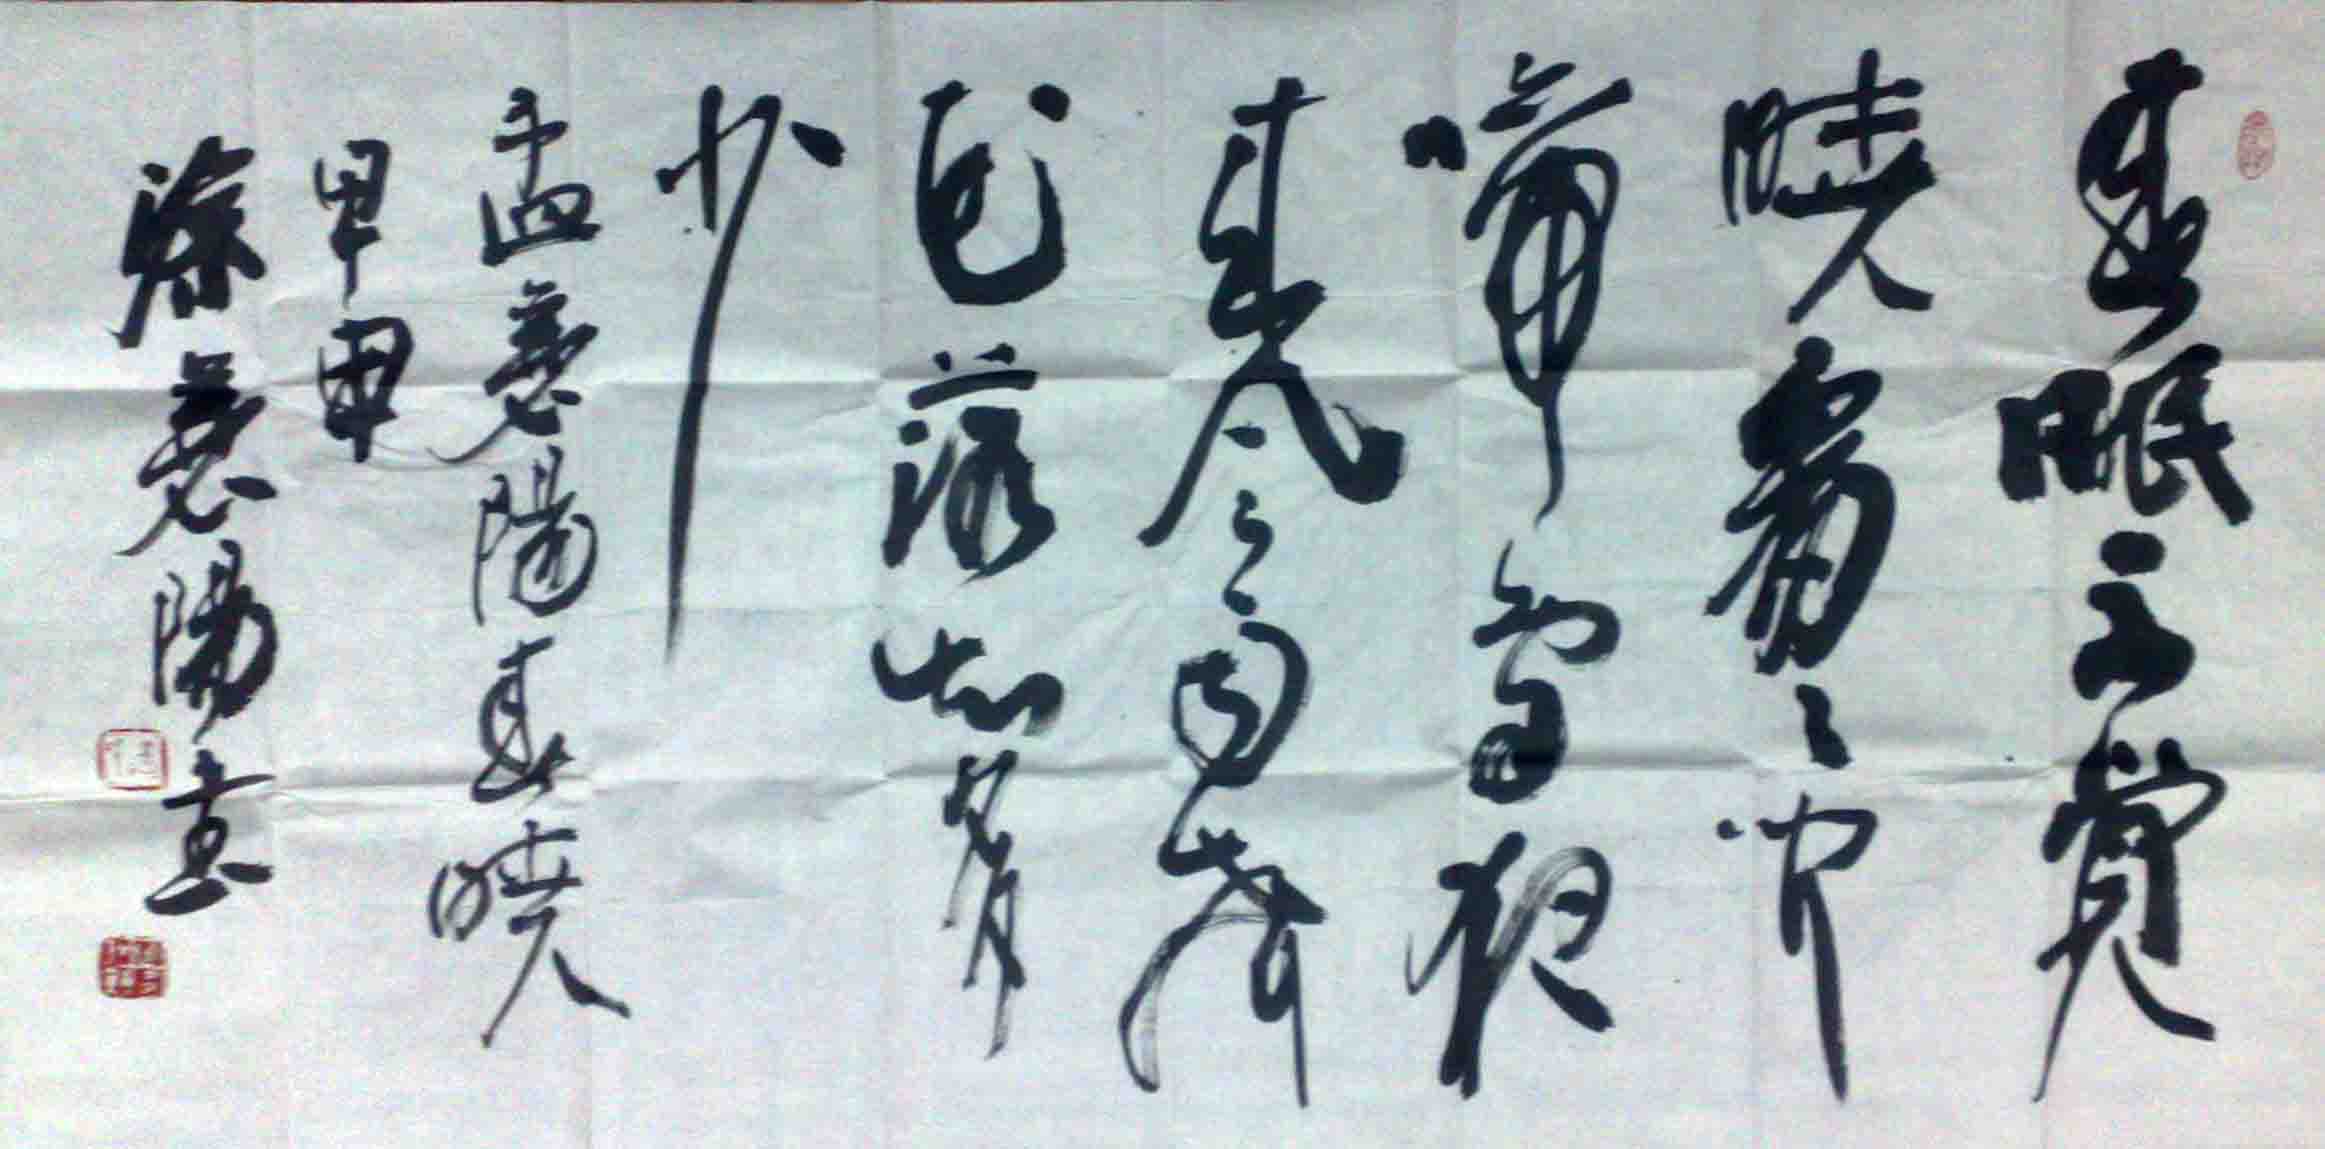 春眠不覺
曉處々聞
啼鳥夜
來風雨聲
花落知多
少
孟襄陽春曉
甲申
襄陽書